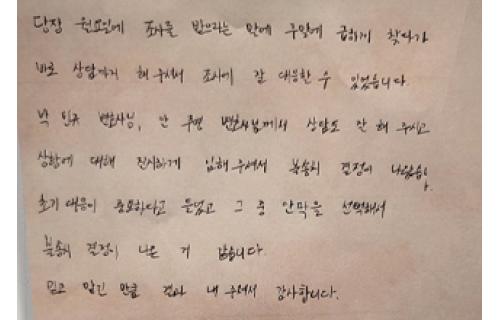 당장 월요일에 조사를 받으라는 말에 주말에 급하게 찾다가
바로 상담까지 해 주셔서 조사에 잘 대응할 수 있었습니다.
박 민규 변호사님, 안 주연 변호사님께서 상담도 잘 해 주시고
상황에 대해 진지하게 임해 주셔서 불송치 결정이 나왔습니다
초기 대응이 중요하다고 들었고 그 중 안팍을 선택해서
불송치 결정이 나온 거 같습니다.
믿고 맡긴 만큼 결과 내 주셔서 감사합니다.